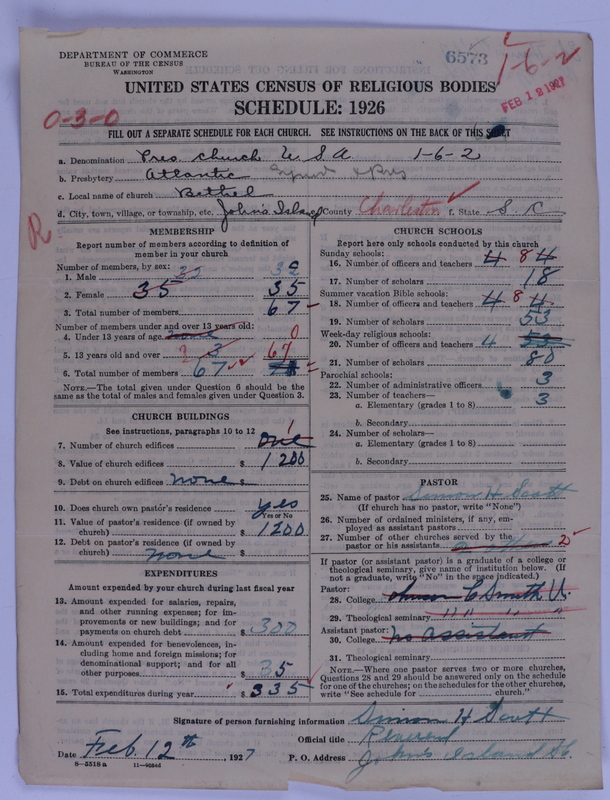 DEPARTMENT OF COMMERCE
BUREAU OF THE CENSUS
WASHINGTON
6573
1-6-2
FEB 12 1927
UNITED STATES CENSUS OF RELIGIOUS BODIES
SCHEDULE: 1926
0-3-0
FILL OUT A SEPARATE SCHEDULE FOR EACH CHURCH. SEE INSTRUCTIONS ON THE BACK OF THIS SHEET
a. Denomination Pres. Church U S A 1-6-2
b. Presbytery Atlantic
c. Local name of church Bethel
d. City, town, village, or township, etc. John's Island County Charleston f. State S C
R
MEMBERSHIP
Report number of members according to definition of
member in your church
Number of members, by sex:
1. Male 32 32
2. Female 35 35
3. Total number of members 67
Number of members under and over 13 years old:
4. Under 13 years of age none 0
5. 13 years old and over 67
6. Total number of members 67
NOTE.—The total given under Question 6 should be
same as the total of males and females given under Question 3.
CHURCH BUILDINGS
See instructions, paragraphs 10 to 12
7. Number of church edifices one 1
8. Value of church edifices $ 1200
9. Debt on church edifices none $
10. Does church own pastor's residence yes
Yes or No
11. Value of pastor's residence (if owned by
church) $ 1200
12. Debt on pastor's residence (if owned by
church) none $
EXPENDITURES
Amount expended by your church during last fiscal year
13. Amount expended for salaries, repairs,
and other running expenses; for im-
provements or new buildings; and for
payments on church debt $ 300
14. Amount expended for benevolences, in-
cluding home and foreign missions; for
denominational support; and for all
other purposes $ 35
15. Total expenditures during year $ 335
CHURCH SCHOOLS
Report here only schools conducted by this church
Sunday schools:
16. Number of officers and teachers 4 8 4
17. Number of scholars 18
Summer vacation Bible schools:
18. Number of officers and teachers 4 8 4
19. Number of scholars 53
Week-day religious schools:
20. Number of officers and teachers 4
21. Number of scholars 80
Parochial schools:
22. Number of administrative officers 3
23. Number of teachers— 3
a. Elementary (grades 1 to 8)
b. Secondary
24. Number of scholars—
a. Elementary (grades 1 to 8)
b. Secondary
PASTOR
25. Name of pastor Simon H Scott
(If church has no pastor, write "None")
26. Number of ordained ministers, if any, em-
ployed as assistant pastors
27. Number of other churches served by the
pastor or his assistants
If pastor (or assistant pastor) is a graduate of a college or
theological seminary, give name of institution below. (If
not a graduate, write "No" in the space indicated.)
Pastor:
28. College Johnson C Smith U.
29. Theological seminary " " " "
Assistant pastor:
30. College No Assistant
31. Theological seminary
NOTE.—Where one pastor serves two or more churches,
Questions 28 and 29 should be answered only on the schedule
for one of the churches; on the schedules for the other churches,
write "See schedule for church."
Signature of person furnishing information Simon H Scott
Official title Reverend
Date Feb. 12th, 1927 P. O. Address John's Island SC.
8—5518 a